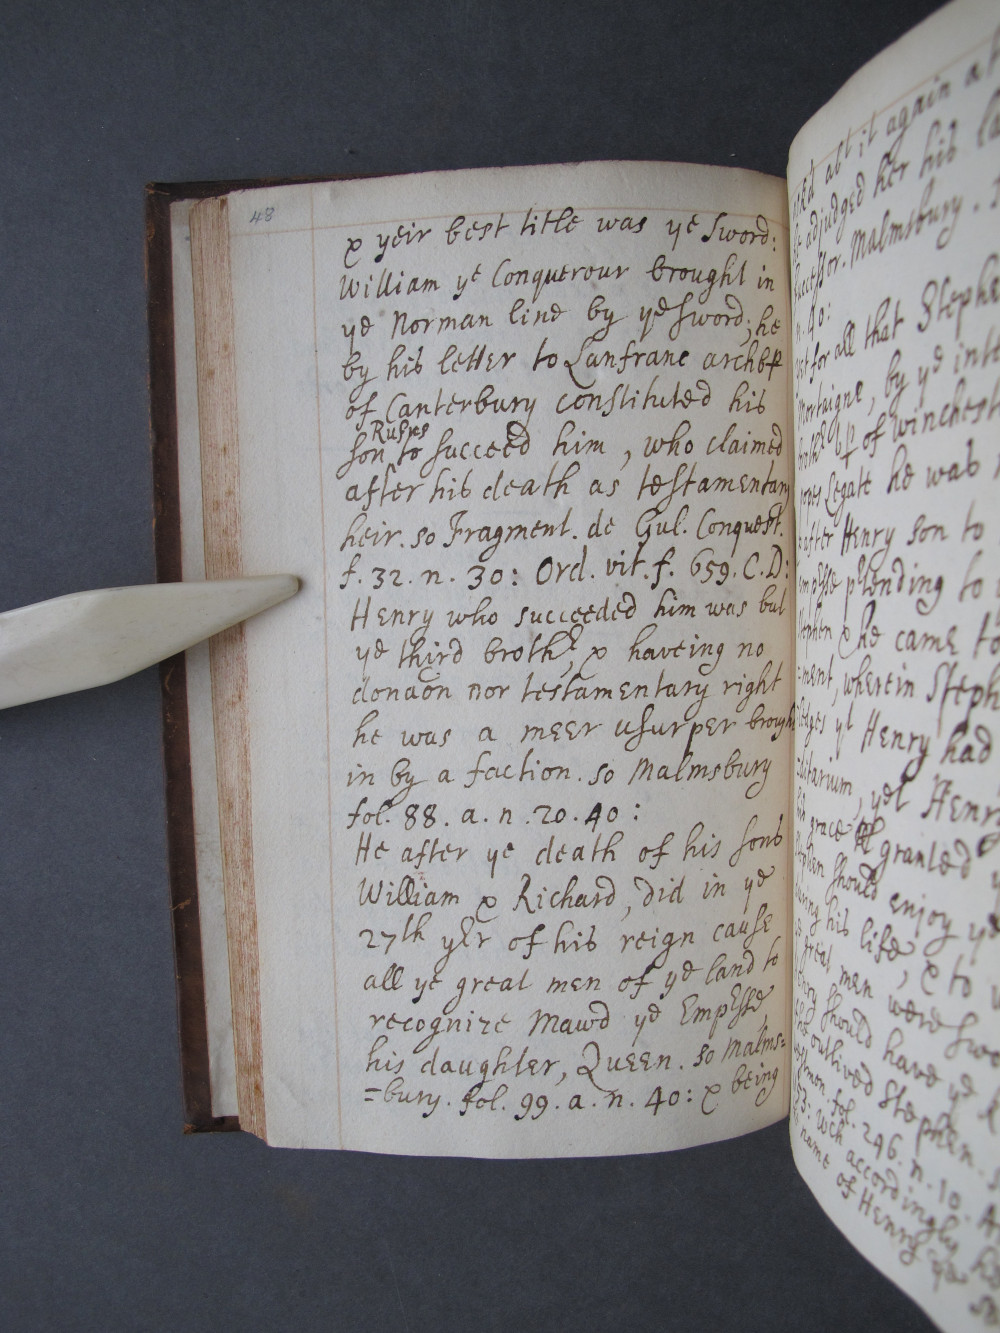 48
& yeir best title was ye sword:
William ye Conquerour brought in
ye Norman line by ye sword; he
by his letter to Lanfranc archbp
of Canterbury constituted his
Rufus
son to succeed him, who claimed
after his death as testamentary
heir. so Fragment. de Gul. Conquest.
f. 32. n. 30: Ord. vit. f. 659. C.D:
Henry who succeeded him was but
ye third broth:, & haveing no
donaōn nor testamentary right
he was a meer usurper brought
in by a faction. so Malmsbury
fol. 88. a. n. 20. 40:
He after ye death of his sons
William & Richard, did in ye
27th yer of his reign cause
all ye great men of ye land to
recognize Mawd ye Empesse,
his daughter, Queen. so Malms=
=bury. fol. 99. a. n. 40: & being
it again at
he adjudged her his
successor. Malmsbury.
n. 40:
for all that Steph
Mortaigne, by ye
bp of Winchest
popes Legate he was
after Henry son to
Empesse ptending to
Stephen & he came to
=ment, wherein Steph
yt Henry had
yet Henr
grace granted
Stephen should enjoy ye
during his life, & to
great men were
Henry should have ye
outlived Stephen.
fol. 246. n. 10.
wch accordingly he
name of Henry ye